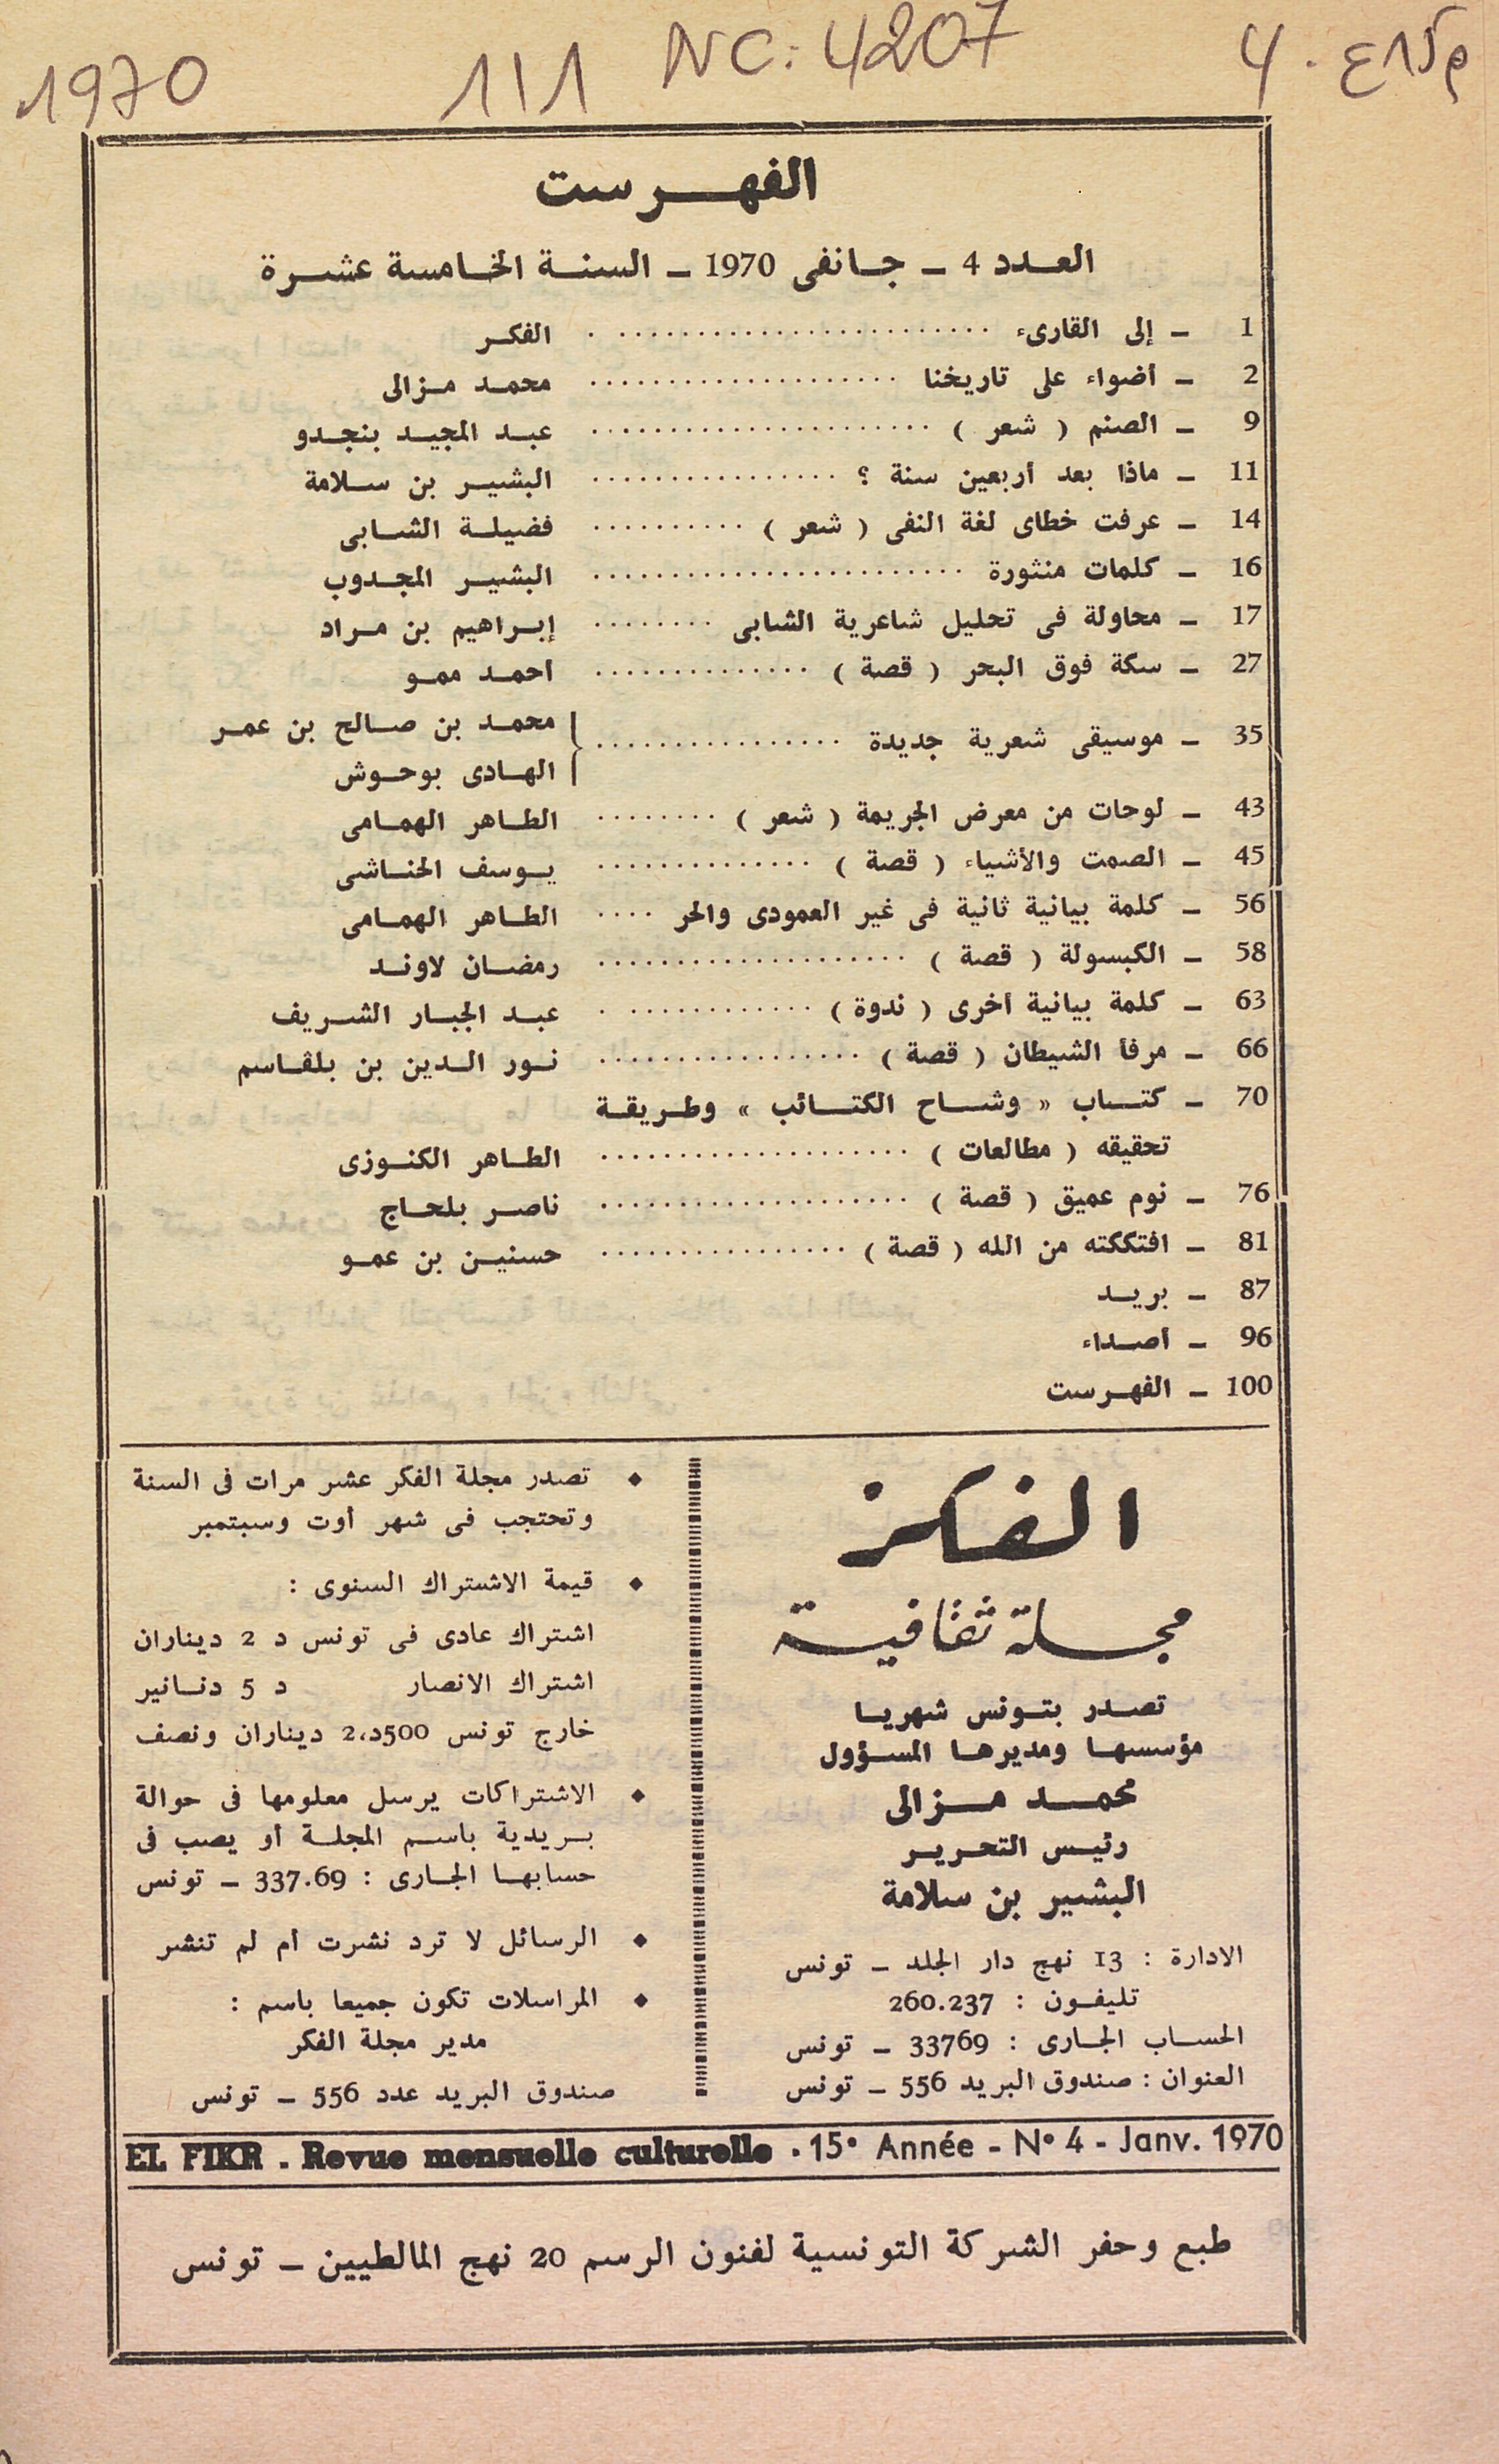 1970 111 NC: 4207 4.ع15م
الفهرست
العدد 4 ـ جانفى 1970 ـ السنة الخامسة عشرة
1 ـ إلى القارىء ........................ الفكر
2 ـ أضواء على تاريخنا .................... محمد مزالى
9 ـ الصنم ( شعر ) ...................... عبد المجيد بنجدو
11 ـ ماذا بعد أربعين سنة ؟ ................ البشير بن سلامة
14 ـ عرفت خطاى لغة النفى ( شعر ) .......... فضيلة الشابى
16 ـ كلمات منثورة ........................ البشير المجدوب
17 ـ محاولة فى تحليل شاعرية الشابى ........ إبراهيم بن مراد
27 ـ سكة فوق البحر ( قصة ) .............. احمد ممو
35 ـ موسيقى شعرية جديدة ................ { محمد بن صالح بن عمر
الهادى بوحوش
43 ـ لوحات من معرض الجريمة ( شعر ) ........ الطاهر الهمامى
45 ـ الصمت والأشياء ( قصة ) .............. يوسف الحناشى
56 ـ كلمة بيانية ثانية فى غير العمودى والحر .... الطاهر الهمامى
58 ـ الكبسولة ( قصة ) .................... رمضان لاوند
63 ـ كلمة بيانية أخرى ( ندوة ) ............. عبد الجبار الشريف
66 ـ مرفأ الشيطان ( قصة ) ................. نور الدين بن بلقاسم
70 ـ كتاب « وشاح الكتائب » وطريقة
تحقيقه ( مطالعات ) .................... الطاهر الكنوزى
76 ـ نوم عميق ( قصة ) .................... ناصر بلحاج
81 ـ افتككته من الله ( قصة ) ................ حسنين بن عمو
87 ـ بريد
96 ـ أصداء
100 ـ الفهرست
الفكر
مجلة ثقافية
تصدر بتونس شهريا
مؤسسها ومديرها المسؤول
محمد مزالى
رئيس التحرير
البشير بن سلامة
الادارة : 13 نهج دار الجلد ـ تونس
تليفون : 260.237
الحساب الجارى : 33769 ـ تونس
العنوان : صندوق البريد 556 ـ تونس
♦ تصدر مجلة الفكر عشر مرات فى السنة
وتحتجب فى شهر أوت وسبتمبر
♦ قيمة الاشتراك السنوى :
اشتراك عادى فى تونس د 2 ديناران
اشتراك الانصار د 5 دنانير
خارج تونس 500د،2 ديناران ونصف
♦ الاشتراكات يرسل معلومها فى حوالة
بريدية باسم المجلة أو يصب فى
حسابها الجارى : 337.69 ـ تونس
♦ الرسائل لا ترد نشرت أم لم تنشر
♦ المراسلات تكون جميعا باسم :
مدير مجلة الفكر
صندوق البريد عدد 556 ـ تونس
EL FIKR . Revue mensuelle culturelle . 15° Année - N° 4 - Janv. 1970
طبع وحفر الشركة التونسية لفنون الرسم 20 نهج المالطيين ـ تونس